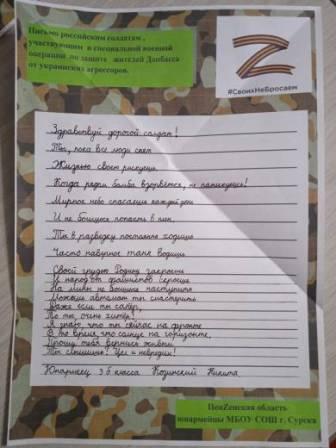 Письмо российским солдатам,
участвующим в специальной военной
операции по защите жителей Донбасса
от украинских агрессоров.
#СвоихНеБросаем
Здравствуй дорогой солдат!
Ты, пока все люди спят
Жизнью своей рискуешь.
Когда рядом бомба взорвется, не паникуешь!
Мирное небо спасаешь каждый день
И не боишься попасть в плен.
Ты в разведку постоянно ходишь
Часто наверное танк водишь
Своей грудью Родину заслоняешь
За народ от фашистов
На мины не боишься наступить
автомат ты
Даже если ты сапёр,
То ты очень хитёр!
Я знаю, что ты сейчас на фронте
В то время, что солнце на горизонте.
Прошу тебя вернись живым
Ты слышишь! Цел и невредим!
Юнармеец 3 б класса Никита
ПенZенская область
юнармейцы МБОУ СОШ г. Сурска